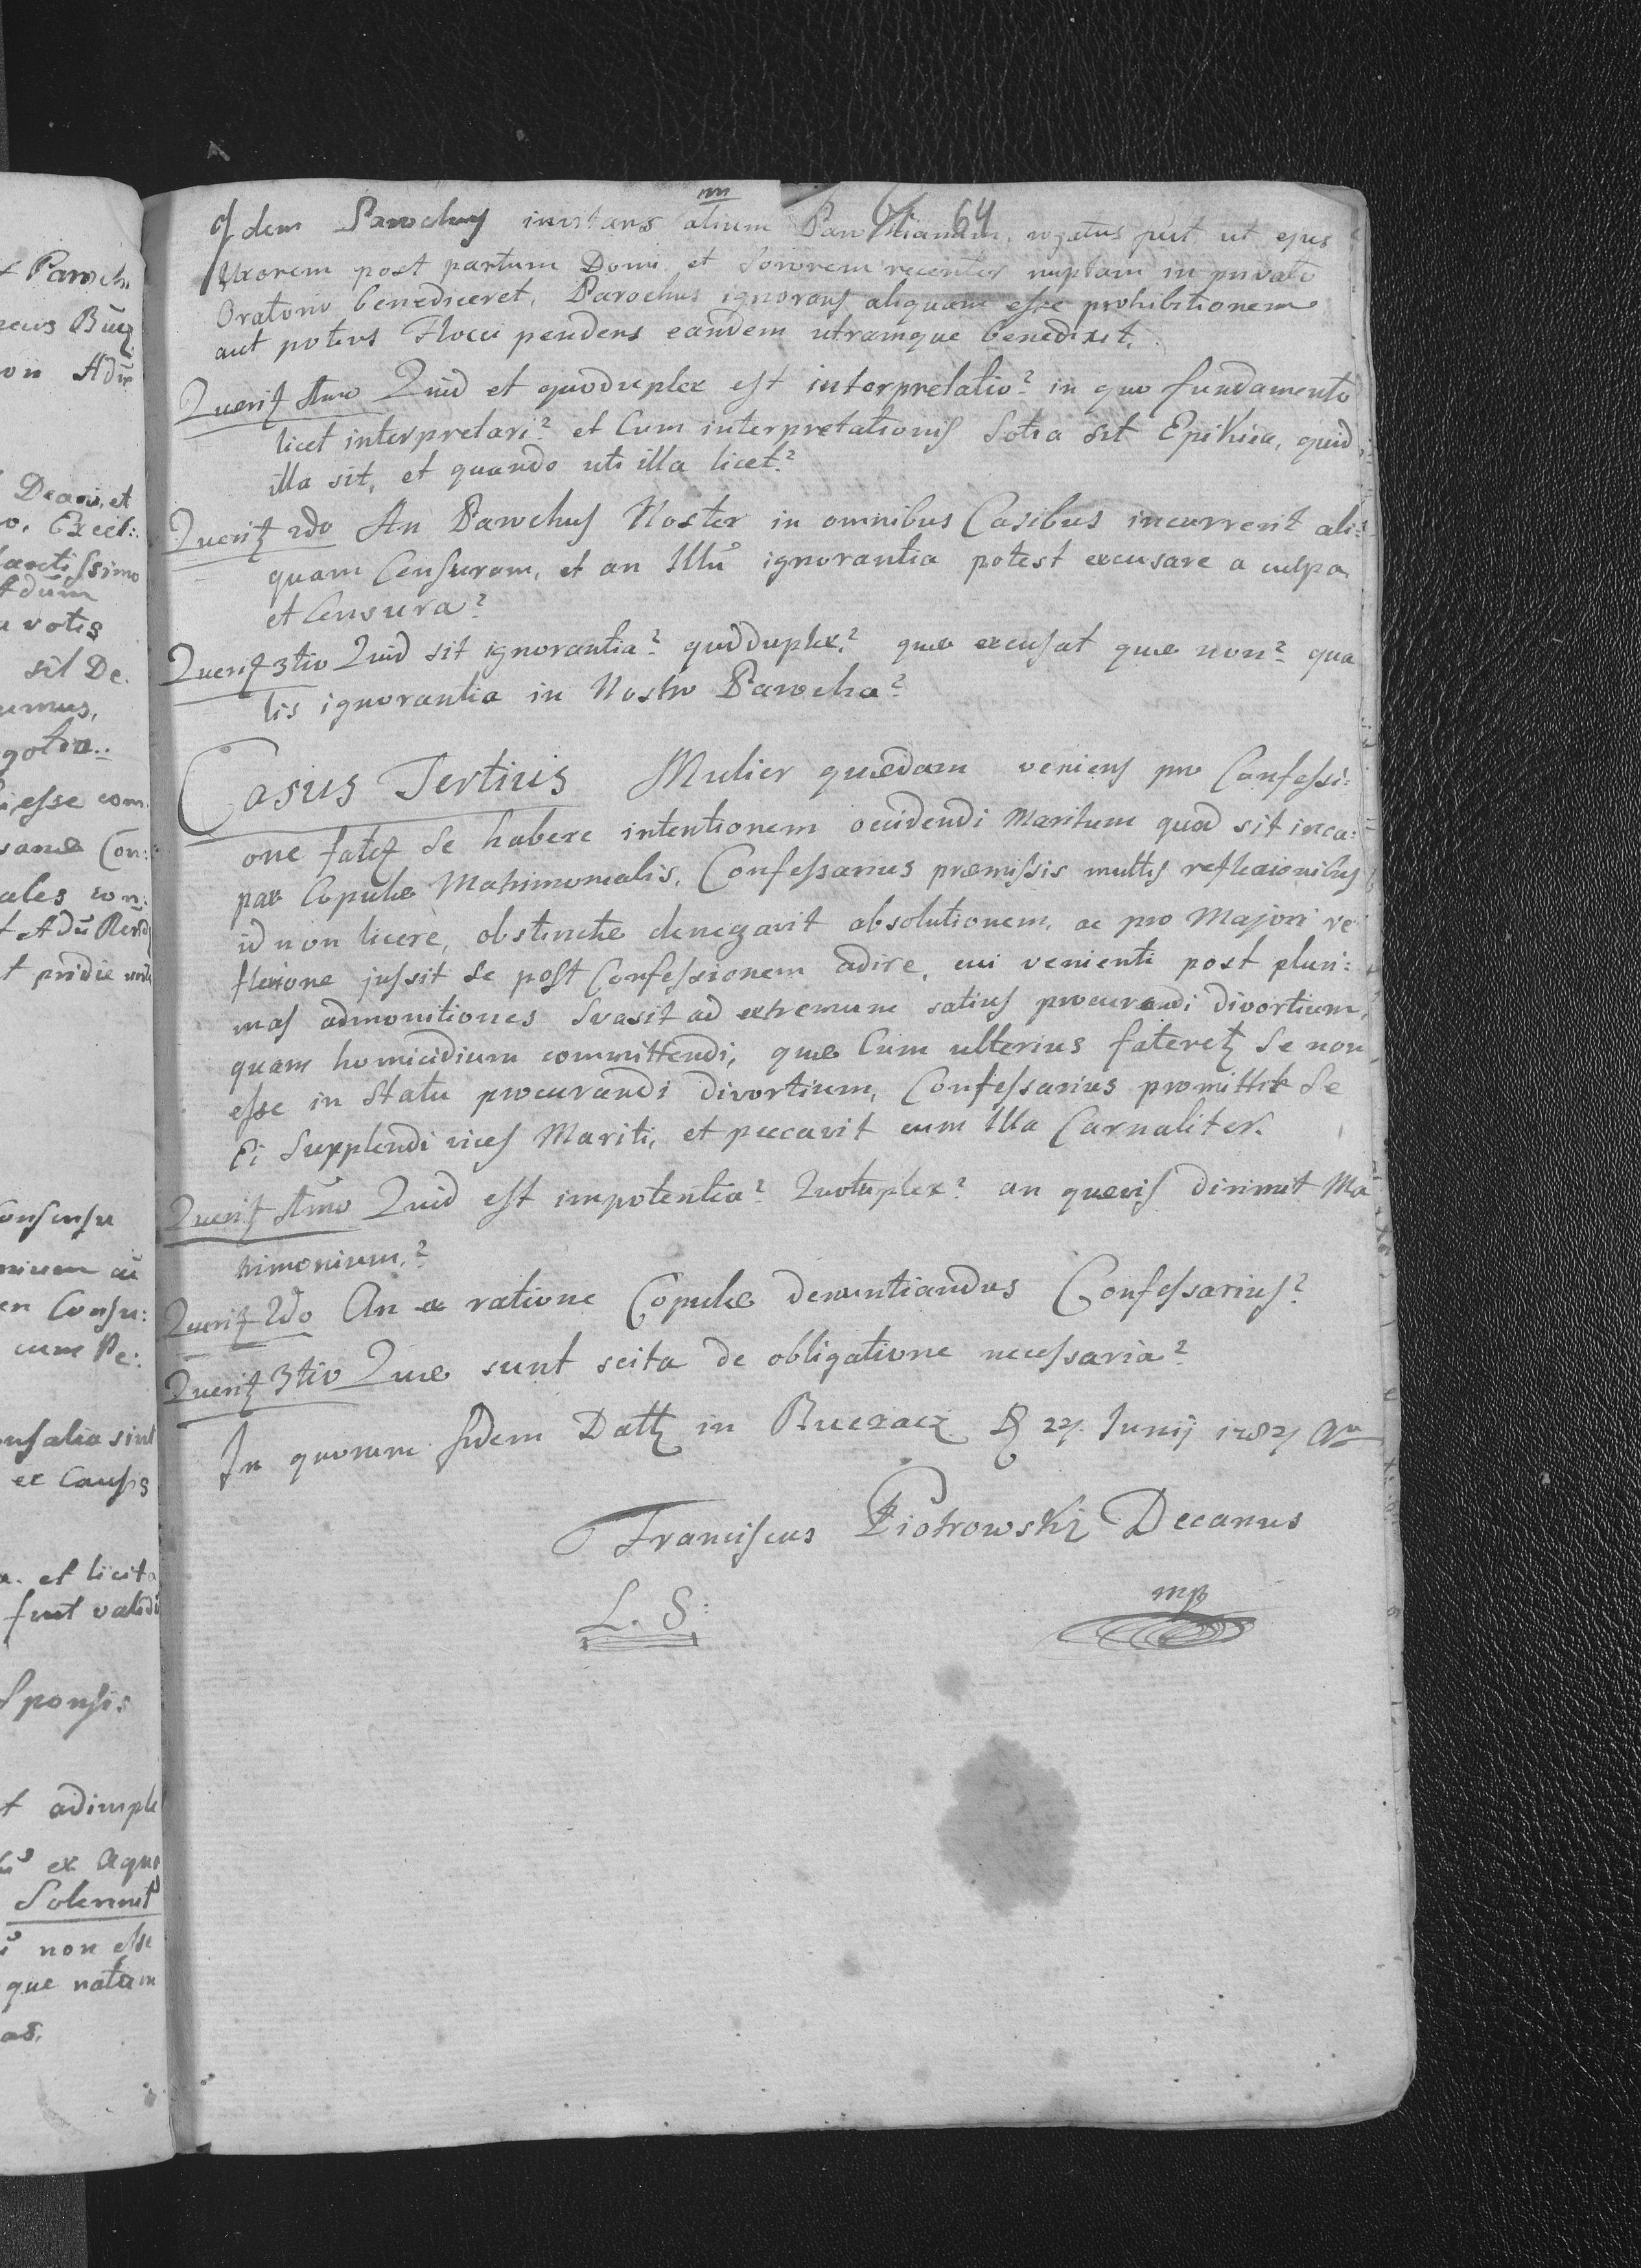 64
Idem Parochus invitans alium Parochianum, rogatus fuit ut ejus
Uxorem post partum Domi et Sororem recenter nuptam in privato
Oratorio benediceret, Parochus ignorans aliquam esse prohibitionem
aut potius Flocci pendens eandem utramque benedixit.
Querit 1mo Quid et quoduplex est interpretatio? in quo fundamento
licet interpretari? et Cum interpretationis Sotia sit Epikiia, quid
illa sit, et quando uti illa licet?
Querit 2do An Parochus Noster in omnibus Casibus incurrerit ali:
quam Censuram, et an Illū ignorantia potest excusare a culpa
et Censura?
Querit 3tio Quid sit ignorantia? quodduplex? que excusat que non? qua
lis ignorantia in Nostro Parocho?
Casus Tertius Mulier quædam veniens pro Confessi:
one fatet Se habere intentionem occidendi Maritum quod sit inca:
pax Copulæ Matrimonialis, Confessarius præmissis multis reflexionibus
id non licere, obstinate denegavit absolutionem, ac pro Majori re
flexione jussit Se post Confessionem adire, cui venienti post pluri:
mas admonitiones Svasit ad extremum satius procurandi divortium,
quam homicidium committendi, quæ Cum ulterius fateret Se non
esse in Statu procurandi divortium, Confessarius promittit Se
Ei Supplendi vices Mariti, et peccavit cum Illa Carnaliter.
Querit 1mo Quid est impotentia? Quotuplex? an quævis dirimit Ma
trimonium?
Querit 2do An ex ratione Copulæ denuntiandus Confessarius?
Querit 3tio Quæ sunt scita de obligatione necessaria?
In quorum fidem Datt in Buczacz D 27 Junij 1787 Ao
Franciscus Piotrowski Decanus
L. S: mp
x Paroch
Decani, et
o. Excel:
Sanctissimo
votis
sit De.
umus,
esse com
Con:
ales con:
t pridie
Consensu
en Consu:
cum Pe:
onsalia sint
ex Causis
a. et licita
sunt validi
Sponsis
t adimple
ex Aquo
Solennit
non esse
que natum
as.